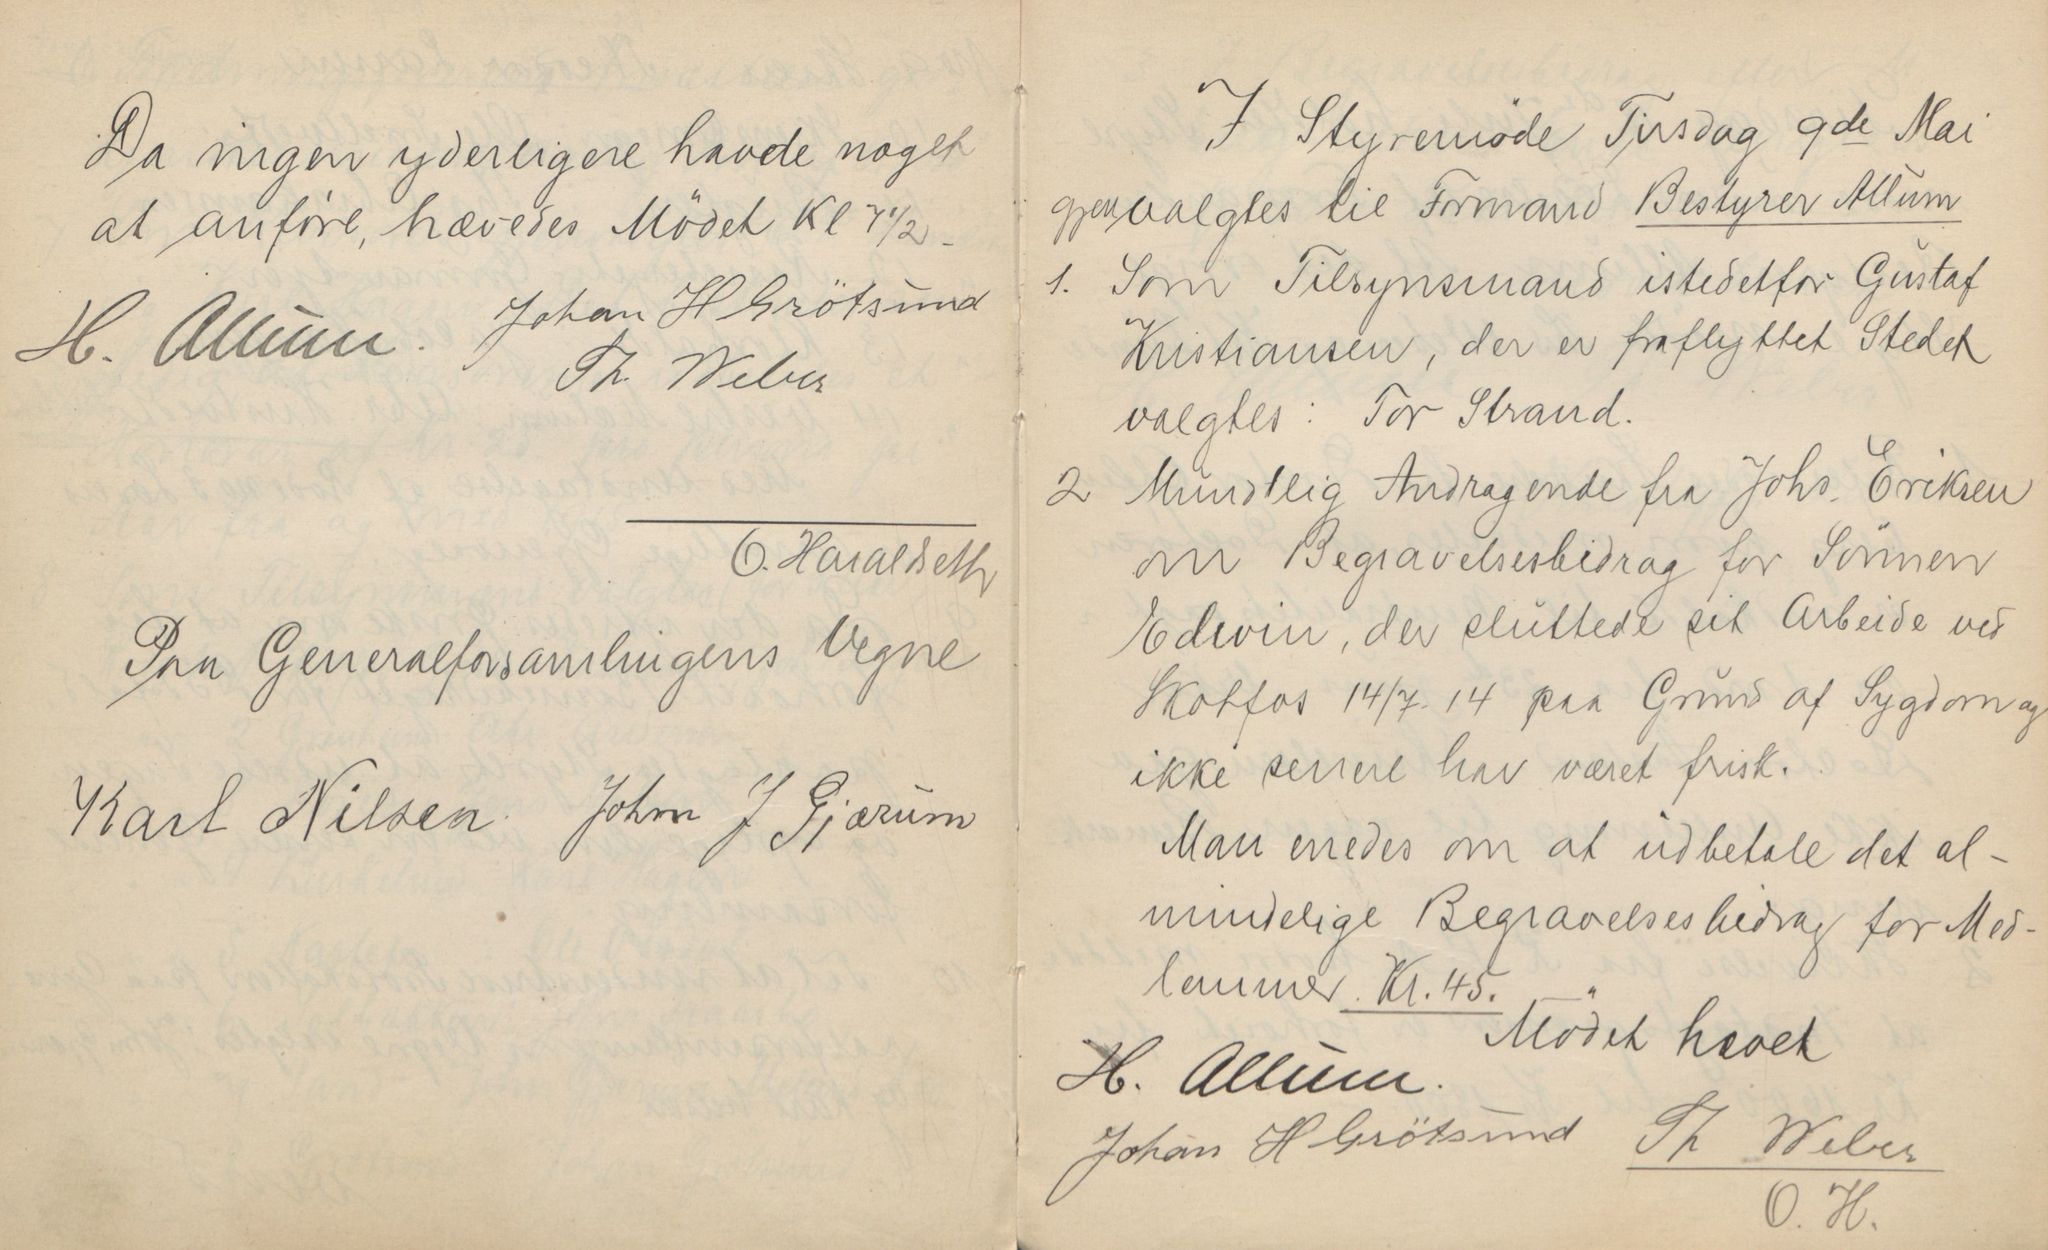 Da ingen yderligere havde noget
at anføre, hævedes Mödet Kl 7 1/2 -
H. Allum. Johan H Grötsund
Th. Weber
O. Haraldseth
Paa Generalforsamlingens Vegne
Karl Nilsen. John J Gjærum
I Styremöde Tirsdag 9de Mai
gjenvalgtes til Formand Bestyrer Allum
1. Som Tilsynsmand istedetfor Gustaf
Kristiansen, der er fraflyttet Stedet
valgtes: Tor Strand.
2 Mundtlig Andragende fra Johs. Eriksen
om Begravelsesbidrag for Sönnen
Edwin, der sluttede sit Arbeide ved
Skotfos 14/7. 14 paa Grund af Sygdom og
ikke senere har været frisk.
Man enedes om at udbetale det al-
mindelige Begravelsesbidrag for Med-
lemmer. Kr. 45.
Mödet hævet
H. Allum.
Johan H Grötsund Th Weber
O. H.